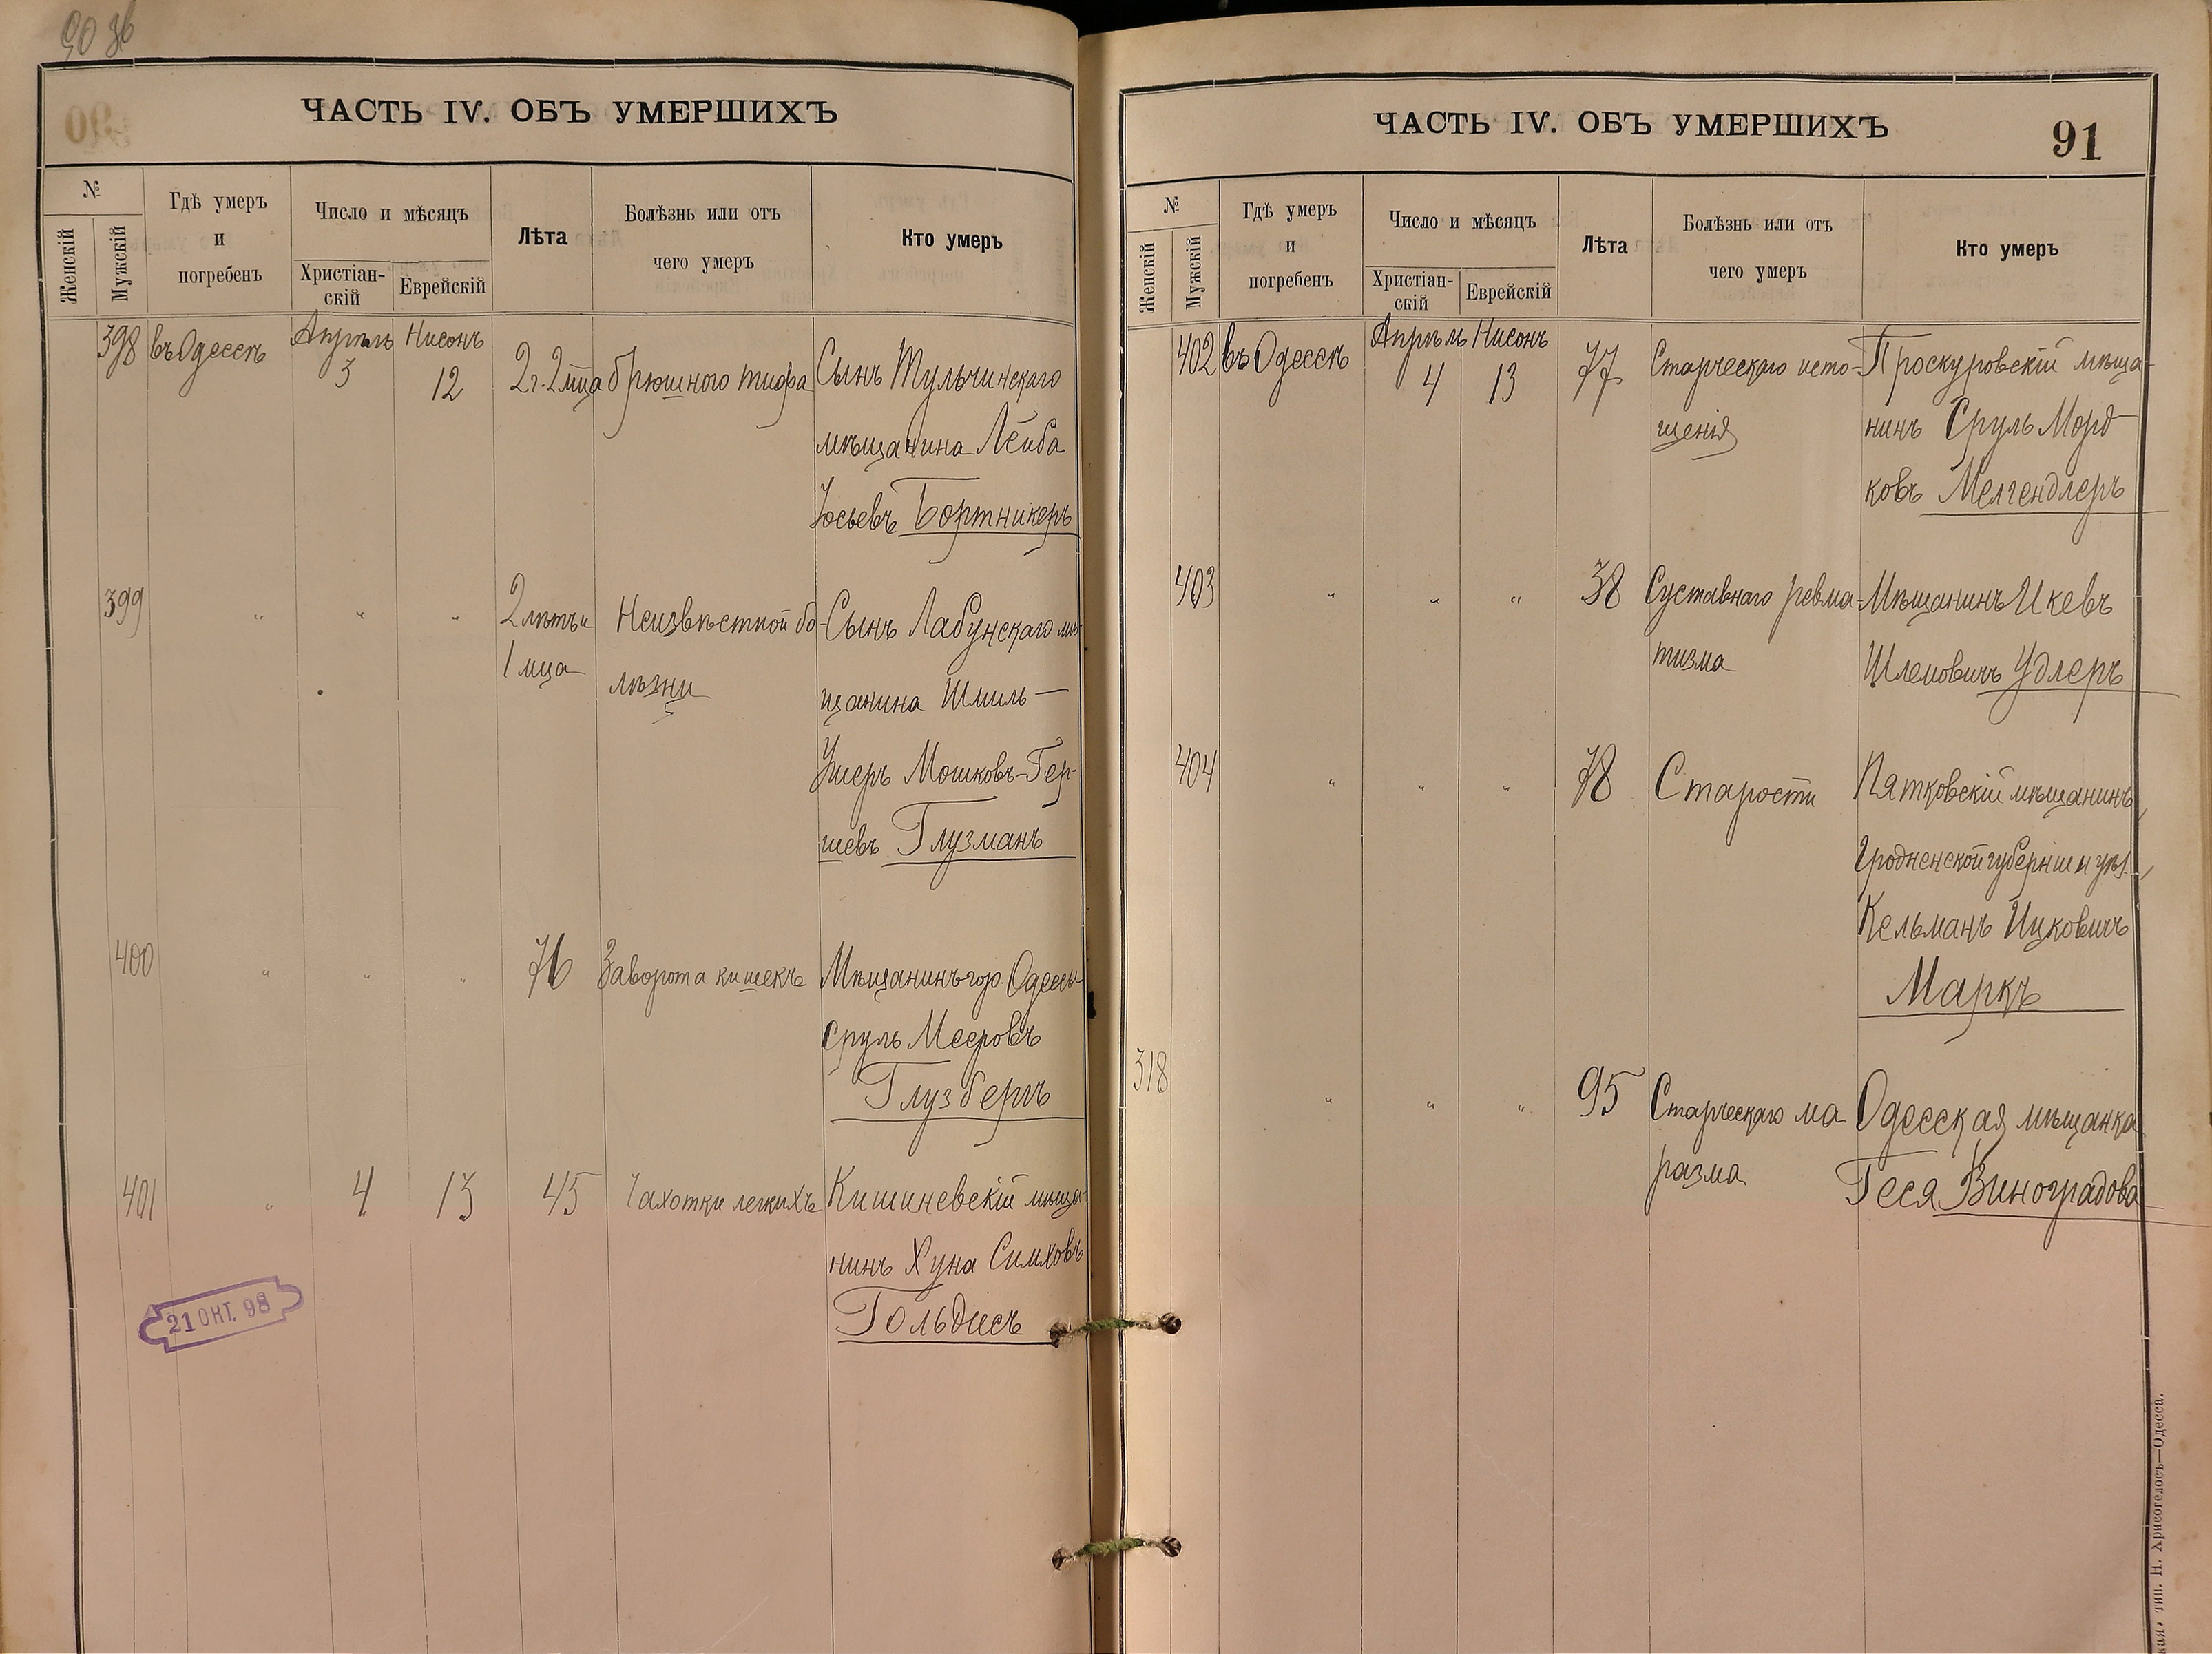 90 зв
ЧАСТЬ IV. ОБЪ УМЕРШИХЪ
№
Женскій
Мужскій
Гдѣ умеръ
и
погребенъ
Число и мѣсяцъ
Христіан-
скій
Еврейскій
Лѣта
Болѣзнь или отъ
чего умеръ
Кто умеръ
398 въ Одессѣ Апрѣль 3 Нисонъ 12 2 г. 2 мца брюшного тифа Сынъ Тульчинскаго
мѣщанина Лейба
Іосьевъ Бортникеръ
399 " " " 2 лѣтъ и Неизвѣстной бо- Сынъ Лабунскаго мѣ-
1 мца лѣзни щанина Шмиль —
Ушеръ Мошковъ-Гер-
шевъ Глузманъ
400 " " " 76 Заворота кишекъ Мѣщанинъ гор. Одессы
Сруль Мееровъ
Глузбергъ
401 " 4 13 45 Чахотки легкихъ Кишиневскій мѣща-
нинъ Хуна Симховъ
Гольдисъ
21 ОКТ. 98
ЧАСТЬ IV. ОБЪ УМЕРШИХЪ
91
№
Женскій
Мужскій
Гдѣ умеръ
и
погребенъ
Число и мѣсяцъ
Христіан-
скій
Еврейскій
Лѣта
Болѣзнь или отъ
чего умеръ
Кто умеръ
402 въ Одессѣ Апрѣль 4 Нисонъ 13 77 Старческаго исто- Проскуровскій мѣща-
щенія нинъ Сруль Морд-
ковъ Мелгендлеръ
403 " " " 38 Суставнаго ревма- Мѣщанинъ Икевъ
тизма Шлемовичъ Удлеръ
404 " " " 78 Старости Пятковскій мѣщанинъ,
Гродненской губерніи и уѣз.,
Кельманъ Ицковичъ
Маркъ
318 " " " 95 Старческаго ма- Одесская мѣщанка
разма Геся Виноградова
тип. Н. Хрисогелосъ—Одесса.